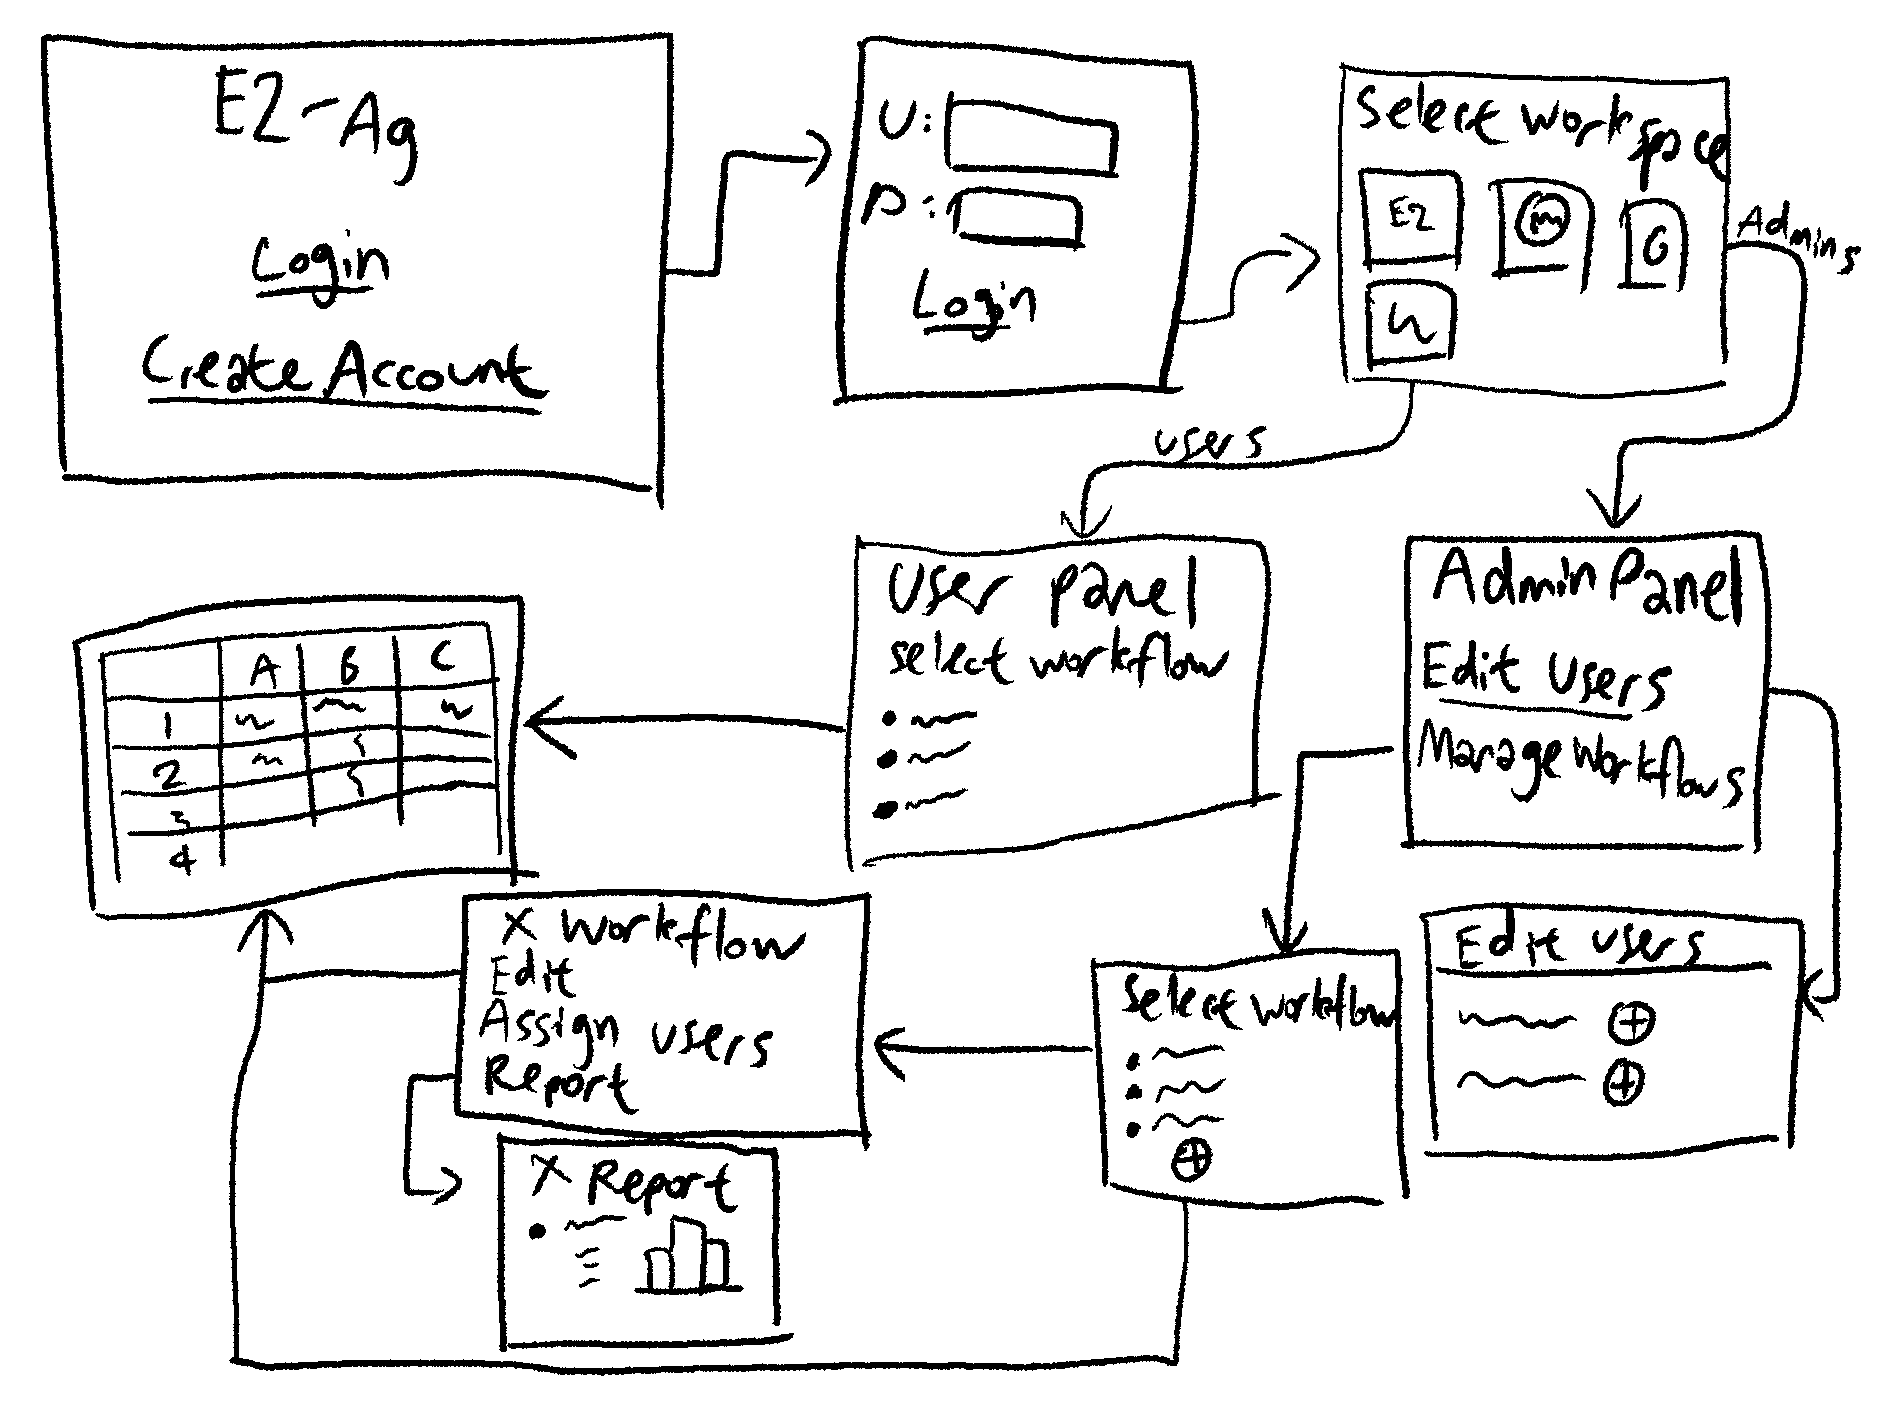 EZ-Ag
Login
Create Account
U:
P:
Login
Select Workspace
EZ
m
G
Admins
users
User Panel
Select workflow
Admin Panel
Edit Users
Manage Workflows
A B C
1
2
3
4
X Workflow
Edit
Assign users
Report
Select workflow
Edit users
X Report